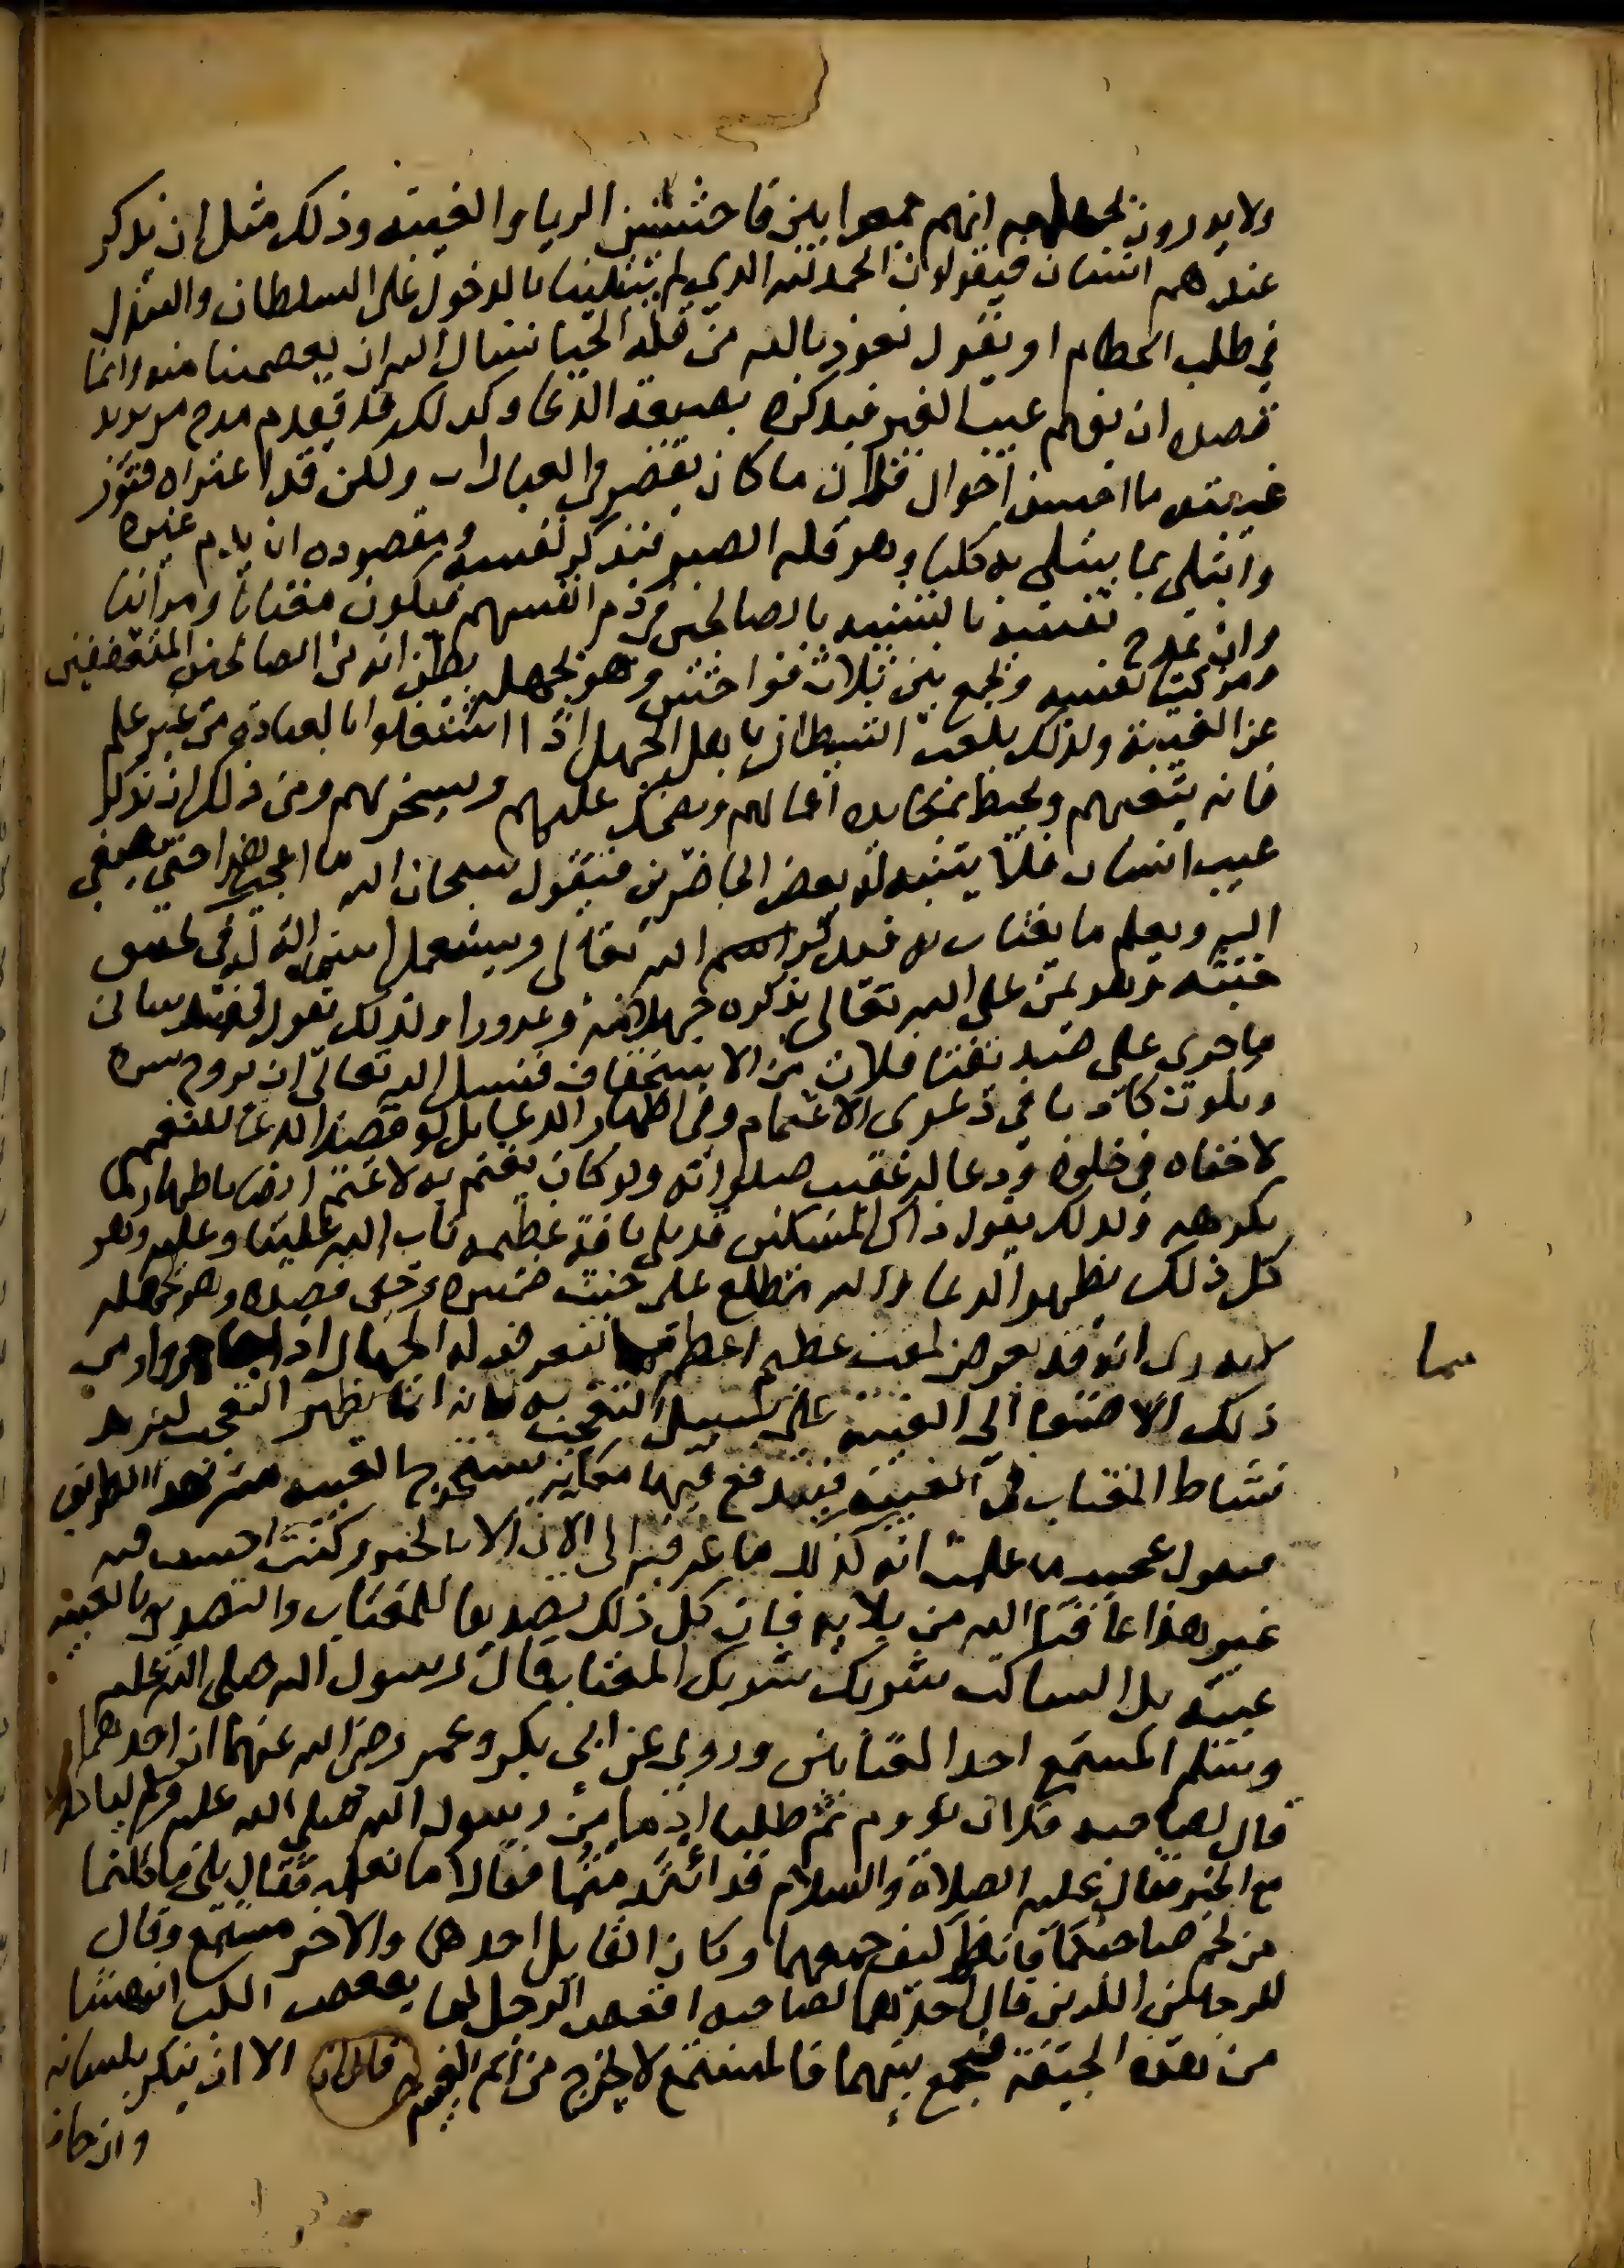 ولا يدرون بجهلهم انهم جمعوا بين فاحشتين الريا والغيبة وذلك مثل ان يذكر
عندهم انسان فيقولون الحمد لله الذي لم يبتلينا بالدخول على السلطان والتبذل
في طلب الحطام او يقول نعوذ بالله من قلة الحيا نسال الله ان يعصمنا منه وانما
قصده ان يفهم عيب الغير فيذكره بصيغة الدعا وكذلك قد يقدم مدح من يريد
غيبته ما احسن احوال فلان ما كان يقصر في العبادات ولكن قد اعتراه فتور
وابتلي بما يبتلى به كلنا وهو قلة الصبر فيذكر نفسه ومقصوده ان يذم غيره
وان يمدح نفسه بالتشبيه بالصالحين في ذم انفسهم فيكون مغتابا ومرائيا
ومزكيا نفسه وجمع بين ثلاث فواحش وهو بجهله يظن انه من الصالحين المتعففين
عن الغيبة ولذلك يلعب الشيطان باهل الجهل اذا اشتغلوا بالعبادة من غير علم
فانه يتبعهم ويحيط بمكايده اعمالهم ويضحك عليهم ويسخر بهم ومن ذلك ان يذكر
عيب انسان فلا يتنبه له بعض الحاضرين فيقول سبحان الله ما اعجب هذا حتى يصغي
اليه ويعلم ما يغتاب به فيذكر اسم الله تعالى ويستعمل اسمه الة له في تحقيق
خبثه وهو يمن على الله تعالى بذكره جهلا منه وغرورا ولذلك يقول لقد ساني
ما جرى على صديقنا فلان من الاستخفاف فنسال الله تعالى ان يروح سره
ويكون كاذبا في دعوى الاغتمام وفي اظهار الدعا بل لو قصد الدعا للنفهم
لاخفاه في خلوة ودعا له عقيب صلواته ولو كان يغتم به لاغتم ايضا باظهار ما
يكرهه وكذلك يقول ذاك المسكين قد بلي بافة عظيمة تاب الله علينا وعليه وهو
كل ذلك يظهر الدعا والله مطلع على خبث ضميره وخفي قصده وهو بجهله
لا يدري انه قد تعرض لمقت عظيم اعظم مما تعرض له الجهال اذا جاهروا ومن
ذلك الاصغا الى الغيبة على سبيل التعجب به فانه انما يظهر التعجب ليزيد
نشاط المغتاب في الغيبة فيندفع فيها فكانه يستخرج الغيبة منه بهذا الطريق
فيقول عجيب ما علمت انه كذلك ما عرفته الى الان الا بالخير وكنت احسب فيه
غير هذا عافنا الله من بلايه فان كل ذلك تصديق للمغتاب والتصديق بالغيبة
غيبة بل الساكت شريك شريك المغتاب قال رسول الله صلى الله عليه
وسلم المستمع احد المغتابين وروي عن ابي بكر وعمر رضي الله عنهما ان احدهما
قال لصاحبه فلان نؤوم ثم طلبا ادما من رسول الله صلى الله عليه وسلم لياكلاه
مع الخبز فقال عليه الصلاة والسلام قد ائتدمتما فقالا ما نعلمه فقال بلى ما اكلتما
من لحم صاحبكما فانظر كيف جمعهما وكان القايل احدهما والاخر مستمع وقال
للرجلين اللذين قال احدهما لصاحبه اقعص الرجل كما يقعص الكلب انهشا
من هذه الجيفة فجمع بينهما فالمستمع لا يخرج من اثم الغيبة الا ان ينكر بلسانه
وان خاف